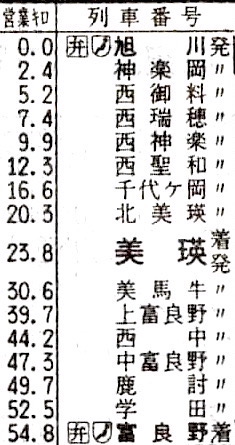 営業キロ 列車番号
0.0 弁 旭川発
2.4 神楽岡〃
5.2 西御料〃
7.4 西瑞穂〃
9.9 西神楽〃
12.3 西聖和〃
16.6 千代ヶ岡〃
20.3 北美瑛〃
23.8 美瑛着発
30.6 美馬牛〃
39.7 上富良野〃
44.2 西中〃
47.3 中富良野〃
49.7 鹿討〃
52.5 学田〃
54.8 弁 富良野着